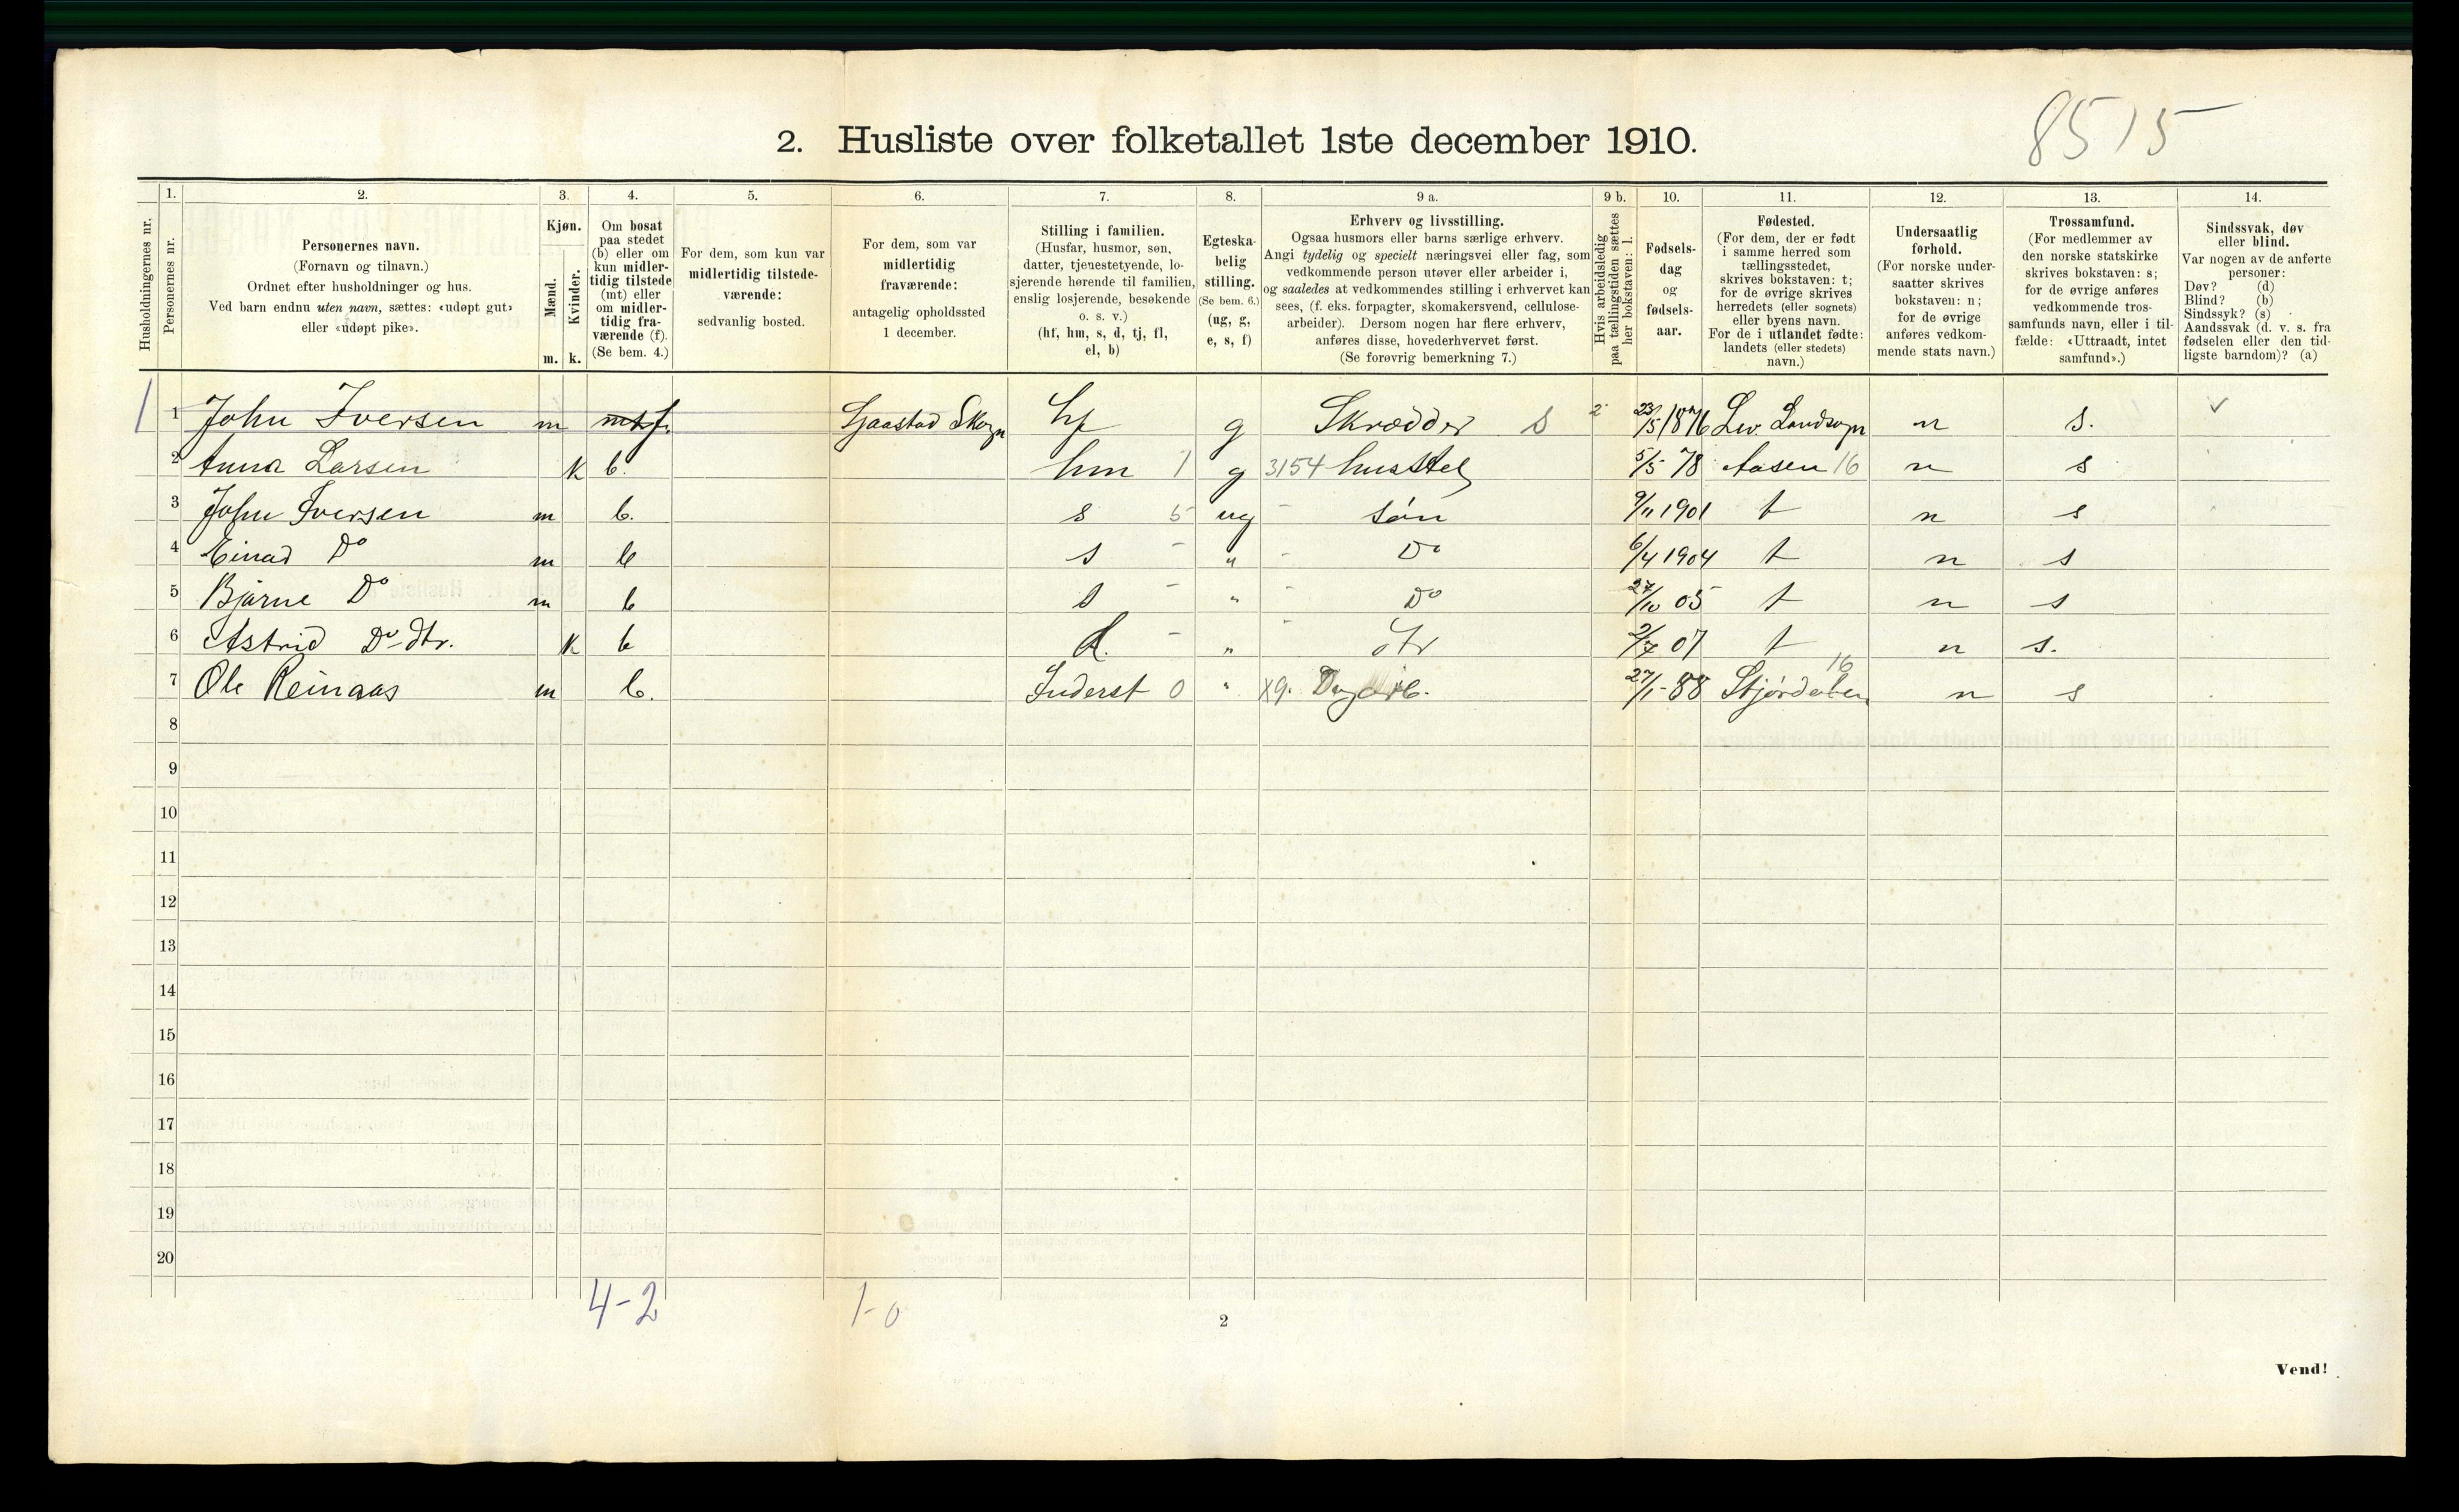 8515
2. Husliste over folketallet 1ste december 1910.
Husholdningernes nr.
1. Personernes nr.
2. Personernes navn.
(Fornavn og tilnavn.)
Ordnet efter husholdninger og hus.
Ved barn endnu uten navn, sættes: «udøpt gut»
eller «udøpt pike».
3. Kjøn.
Mænd. Kvinder.
m. k.
4. Om bosat
paa stedet
(b) eller om
kun midler-
tidig tilstede
(mt) eller
om midler-
tidig fra-
værende (f).
(Se bem. 4.)
5. For dem, som kun var
midlertidig tilstede-
værende:
sedvanlig bosted.
6. For dem, som var
midlertidig
fraværende:
antagelig opholdssted
1 december.
7. Stilling i familien.
(Husfar, husmor, søn,
datter, tjenestetyende, lo-
sjerende hørende til familien,
enslig losjerende, besøkende
o. s. v.)
(hf, hm, s, d, tj, fl,
el, b)
8. Egteska-
belig
stilling.
(Se bem. 6.)
(ug, g,
e, s, f)
9 a. Erhverv og livsstilling.
Ogsaa husmors eller barns særlige erhverv.
Angi tydelig og specielt næringsvei eller fag, som
vedkommende person utøver eller arbeider i,
og saaledes at vedkommendes stilling i erhvervet kan
sees, (f. eks. forpagter, skomakersvend, cellulose-
arbeider). Dersom nogen har flere erhverv,
anføres disse, hovederhvervet først.
(Se forøvrig bemerkning 7.)
9 b. Hvis arbeidsledig
paa tællingstiden sættes
her bokstaven: l.
10. Fødsels-
dag
og
fødsels-
aar.
11. Fødested.
(For dem, der er født
i samme herred som
tællingsstedet,
skrives bokstaven: t;
for de øvrige skrives
herredets (eller sognets)
eller byens navn.
For de i utlandet fødte:
landets (eller stedets)
navn.)
12. Undersaatlig
forhold.
(For norske under-
saatter skrives
bokstaven: n;
for de øvrige
anføres vedkom-
mende stats navn.)
13. Trossamfund.
(For medlemmer av
den norske statskirke
skrives bokstaven: s;
for de øvrige anføres
vedkommende tros-
samfunds navn, eller i til-
fælde: «Uttraadt, intet
samfund».)
14. Sindssvak, døv
eller blind.
Var nogen av de anførte
personer:
Døv? (d)
Blind? (b)
Sindssyk? (s)
Aandssvak (d. v. s. fra
fødselen eller den tid-
ligste barndom)? (a)
1 1 John Iversen m mt f. Sjaastad Skogn hf g Skrædder S 2 23/5 1876 Lev. Landsogn n s. ✓
2 Anna Larsen k b. hm 1 g 3154 husstel 5/5 78 Aasen 16 n s
3 John Iversen m b. s 5 ug - søn 9/11 1901 t n s
4 Einad Do m b s - " - Do 6/4 1904 t n s
5 Bjarne Do m b s - " - Do 27/10 05 t n s
6 Astrid Do-dtr. k b d. - " - dtr 2/7 07 t n s.
7 Ole Reinaas m b. Inderst 0 " x9. Dagarb. 27/1-88 Stjørdalen 16 n s
8
9
10
11
12
13
14
15
16
17
18
19
20
4-2 1-0
2
Vend!